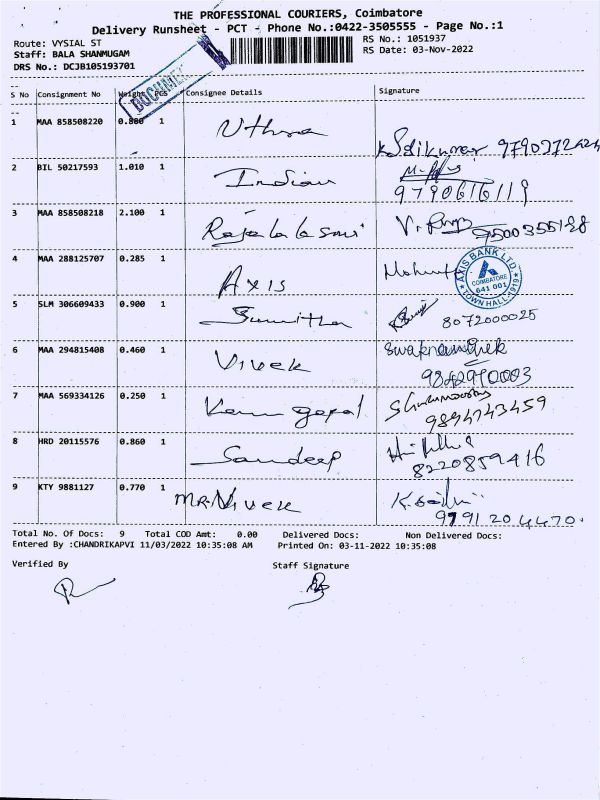 THE PROFESSIONAL COURIERS, Coimbatore
Delivery Runsheet - PCT - Phone No.:0422-3505555 - Page No.:1
Route: VYSIAL ST
Staff: BALA SHANMUGAM
DRS No.: DCJB105193701
RS No.: 1051937
RS Date: 03-Nov-2022
S No Consignment No Weight PCS Consignee Details Signature
1 MAA 858508220 0.880 1 Uthra 
2 BIL 50217593 1.010 1 Indian
9790616119
3 MAA 858508218 2.100 1 9500355198
4 MAA 288125707 0.285 1 Axis
AXIS BANK LTD.
COIMBATORE
641 001
TOWN HALL-1919
5 SLM 306609433 0.900 1 Sumitha
8072000025
6 MAA 294815408 0.460 1 Vivek
9842970003
7 MAA 569334126 0.250 1
9894743459
8 HRD 20115576 0.860 1 Sandeep
8220859416
9 KTY 9881127 0.770 1 Mr. Vivek
9791204470.
Total No. Of Docs: 9 Total COD Amt: 0.00 Delivered Docs: Non Delivered Docs:
Entered By :CHANDRIKAPVI 11/03/2022 10:35:08 AM Printed On: 03-11-2022 10:35:08
Verified By Staff Signature